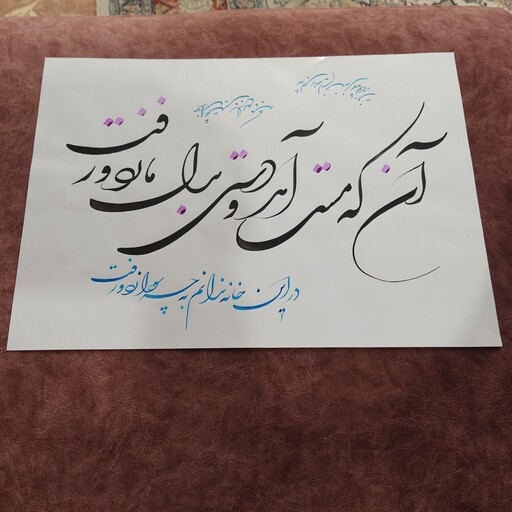 آن که مست آمد و دستی به دل ما زد و رفت
در این خانه ندانم به چه سودا زد و رفت